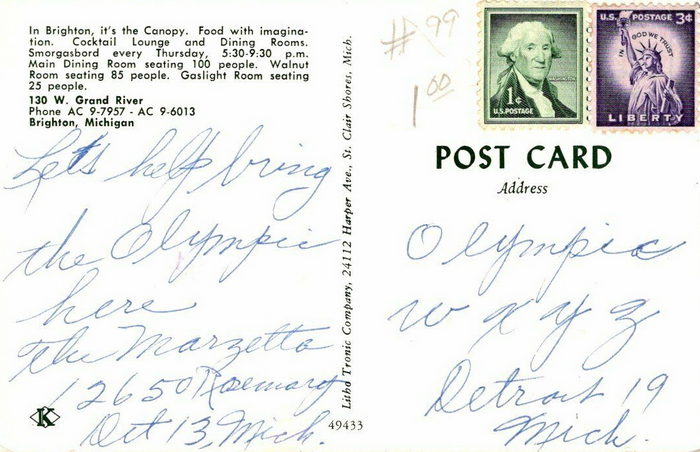 In Brighton, it's the Canopy. Food with imagina-
tion. Cocktail Lounge and Dining Rooms.
Smorgasbord every Thursday, 5:30-9:30 p.m.
Main Dining Room seating 100 people. Walnut
Room seating 85 people. Gaslight Room seating
25 people.
130 W. Grand River
Phone AC 9-7957 - AC 9-6013
Brighton, Michigan
Let's help bring
the Olympic
here
The Marzetta
12650 Rosemary
Det 13, Mich.
K
Litho Tronic Company, 24112 Harper Ave., St. Clair Shores, Mich.
49433
# 99
1 00
WASHINGTON
1¢
U.S. POSTAGE
U.S. POSTAGE 3¢
IN GOD WE TRUST
LIBERTY
POST CARD
Address
Olympic
W X Y Z
Detroit 19
Mich.